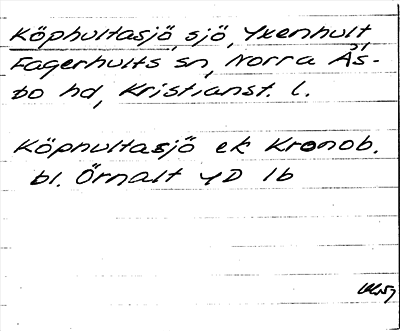 Köphultasjö, sjö, Yxenhult,
Fagerhults sn, Norra Ås-
bo hd, Kristianst. l.
Köphultasjö ek Kronob.
bl. Örnalt 4D 1b